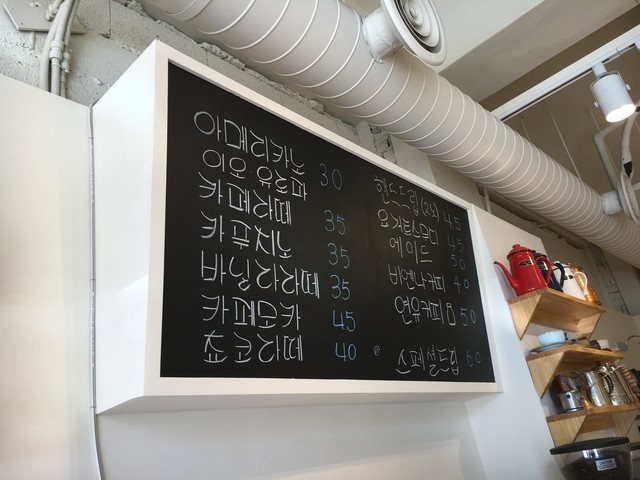 아메리카노 30
이오 유로파
카페라떼 35
카푸치노 35
바닐라라떼 35
카페모카 45
쵸코라떼 40
핸드드립 45
요거트스무디 45
에이드 50
비엔나커피 40
연유커피 50
스페셜드립 60